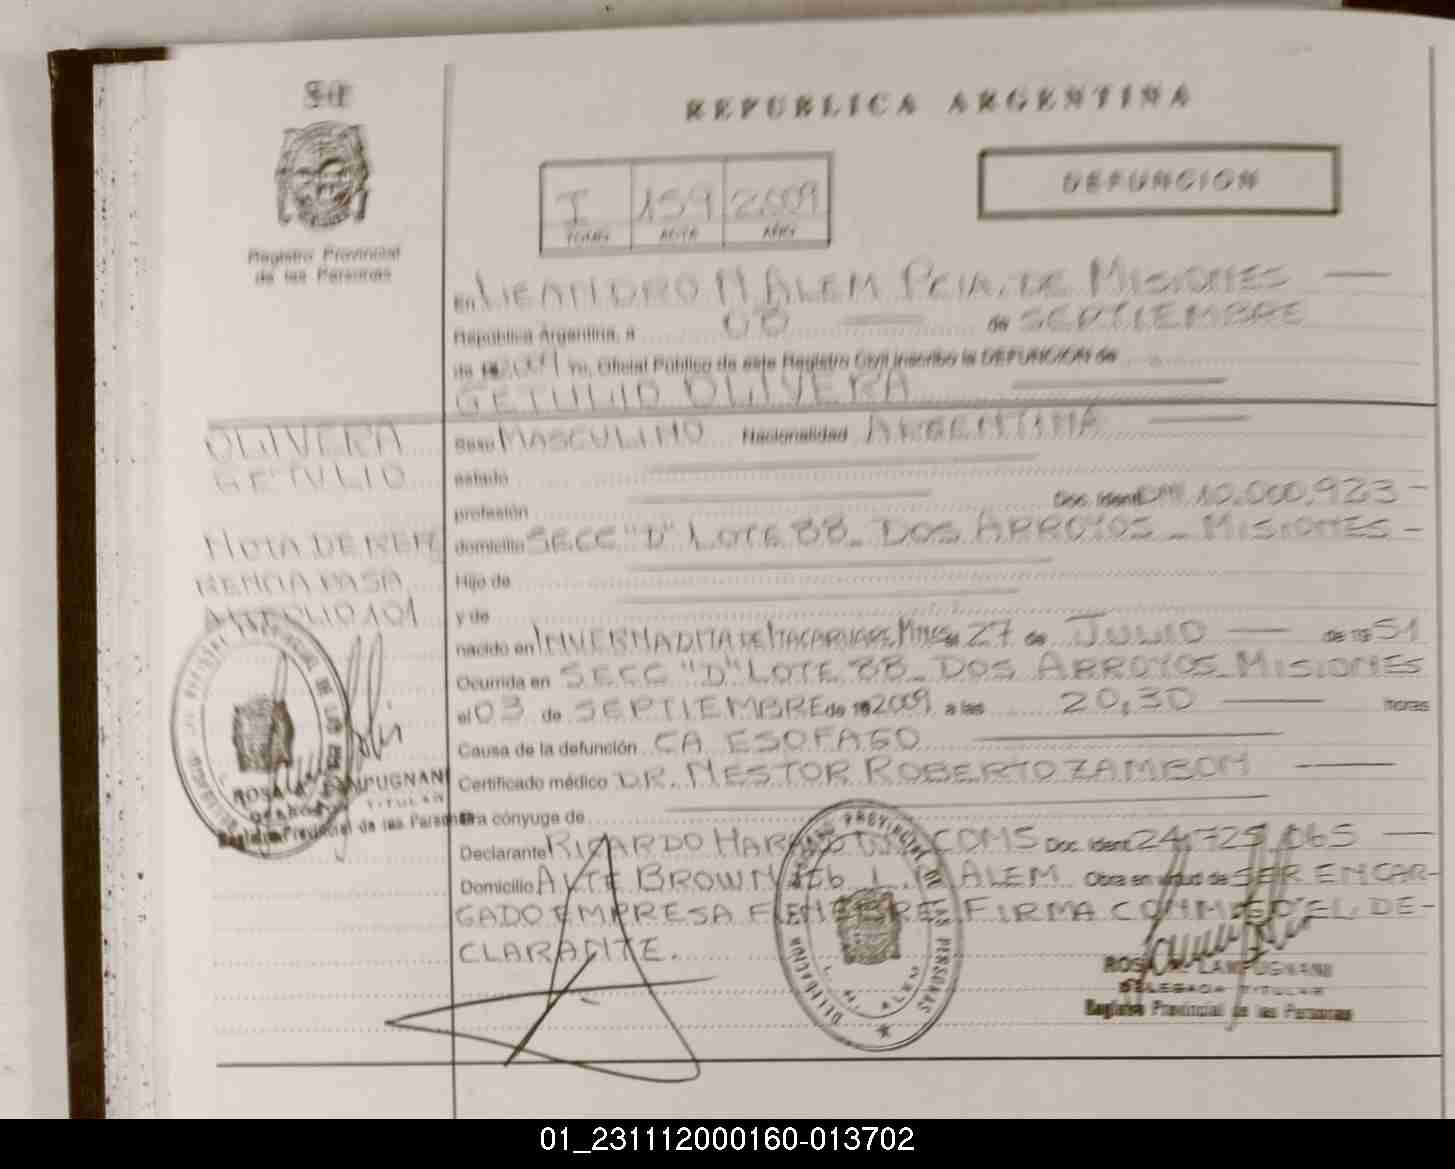 REPUBLICA ARGENTINA
DEFUNCION
I 159 2009
TOMO ACTA AÑO
Registro Provincial
de las Personas
En LEANDRO N ALEM PCIA. DE MISIONES
República Argentina, a de SEPTIEMBRE
de Yo, Oficial Público de este Registro Civil inscribo la DEFUNCION de
GETULIO OLIVERA
OLIVERA
GETULIO
Sexo MASCULINO Nacionalidad ARGENTINA
estado
profesión Doc. Ident. DNI 10.000.923 -
domicilio SECC "D" LOTE 88 - DOS ARROYOS - MISIONES -
NOTA DE REFE
RENCIA PASA
AL FOLIO 101
Hijo de
y de
nacido en ITACARUARE MNES el 27 de JULIO de 19 51
Ocurrida en SECC "D" LOTE 88 - DOS ARROYOS - MISIONES
el 03 de SEPTIEMBRE de 19 2009 a las 20,30 horas
Causa de la defunción CA ESOFAGO
Certificado médico DR. NESTOR ROBERTO ZAMBON
Era cónyuge de
Declarante RICARDO Doc. Ident 24.725.065
Domicilio ALTE BROWN L. N ALEM Obra en virtud de SER ENCAR-
GADO EMPRESA FUNEBRES FIRMA CONMIGO EL DE-
CLARANTE.
ROSA LAMPUGNANI
DELEGADA TITULAR
Registro Provincial de las Personas
ROSA LAMPUGNANI
DELEGADA TITULAR
Registro Provincial de las Personas
DELEGACION L. N. ALEM
REGISTRO PROVINCIAL DE LAS PERSONAS
01_231112000160-013702